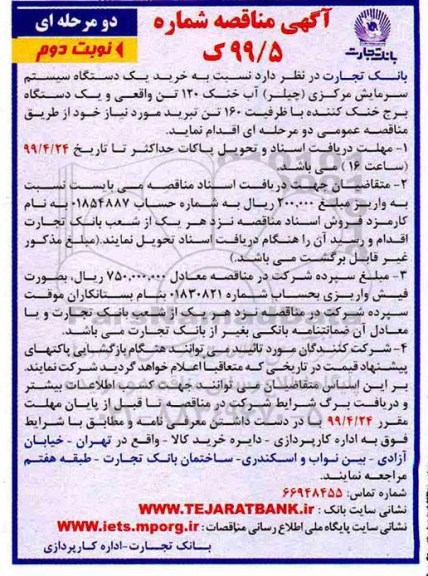 آگهی مناقصه شماره
۹۹/۵ ک
دو مرحله ای
نوبت دوم
بانک تجارت
بانک تجارت در نظر دارد نسبت به خرید یک دستگاه سیستم
سرمایش مرکزی (چیلر) آب خنک ۱۲۰ تن واقعی و یک دستگاه
برج خنک کننده با ظرفیت ۱۶۰ تن تبرید مورد نیاز خود از طریق
مناقصه عمومی دو مرحله ای اقدام نماید.
۱- مهلت دریافت اسناد و تحویل پاکات حداکثر تا تاریخ ۹۹/۴/۲۴
(ساعت ۱۶) می باشد.
۲- متقاضیان جهت دریافت اسناد مناقصه می بایست نسبت
به واریز مبلغ ۲۰۰,۰۰۰ ریال به شماره حساب ۰۱۸۵۴۸۸۷ به نام
کارمزد فروش اسناد مناقصه نزد هر یک از شعب بانک تجارت
اقدام و رسید آن را هنگام دریافت اسناد تحویل نمایند.(مبلغ مذکور
غیر قابل برگشت می باشد.)
۳- مبلغ سپرده شرکت در مناقصه معادل ۷۵۰,۰۰۰,۰۰۰ ریال، بصورت
فیش واریزی بحساب شماره ۰۱۸۳۰۸۲۱ بنام بستانکاران موقت
سپرده شرکت در مناقصه نزد هر یک از شعب بانک تجارت و یا
معادل آن ضمانتنامه بانکی بغیر از بانک تجارت می باشد.
۴- شرکت کنندگان مورد تائید می توانند هنگام بازگشایی پاکتهای
پیشنهاد قیمت در تاریخی که متعاقبا اعلام خواهد گردید شرکت نمایند.
بر این اساس متقاضیان می توانند جهت کسب اطلاعات بیشتر
و دریافت برگ شرایط شرکت در مناقصه تا قبل از پایان مهلت
مقرر ۹۹/۴/۲۴ با در دست داشتن معرفی نامه و مطابق با شرایط
فوق به اداره کارپردازی - دایره خرید کالا - واقع در تهران - خیابان
آزادی - بین نواب و اسکندری- ساختمان بانک تجارت - طبقه هفتم
مراجعه نمایند.
شماره تماس: ۶۶۹۴۸۴۵۵
نشانی سایت بانک : WWW.TEJARATBANK.ir
نشانی سایت پایگاه ملی اطلاع رسانی مناقصات : WWW.iets.mporg.ir
بانک تجارت-اداره کارپردازی